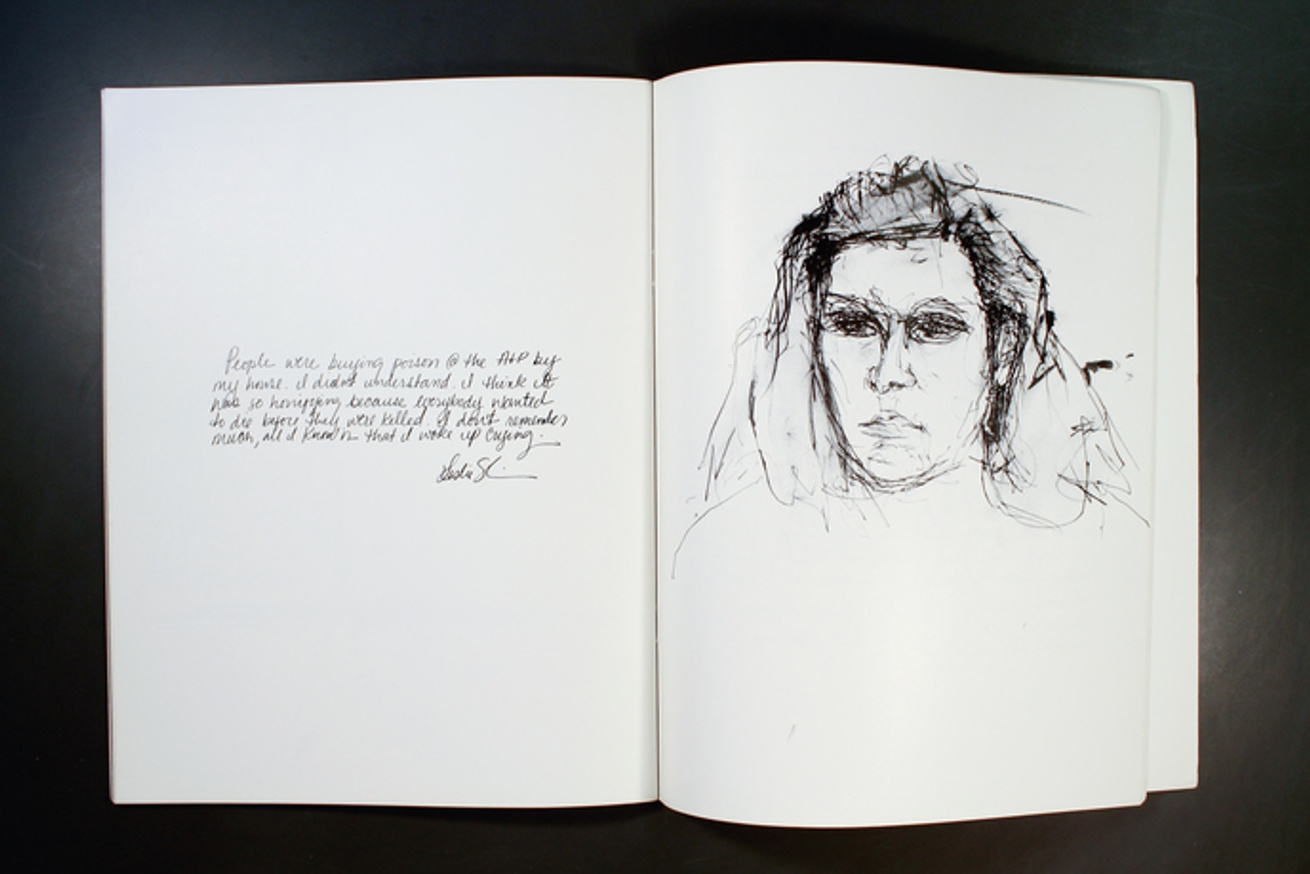 People were buying poison @ the A&P by
my house. I didn't understand. I think it
was so horrifying because everybody wanted
to die before they were killed. I don't remember
much, all I know is that I woke up crying.
Leslie